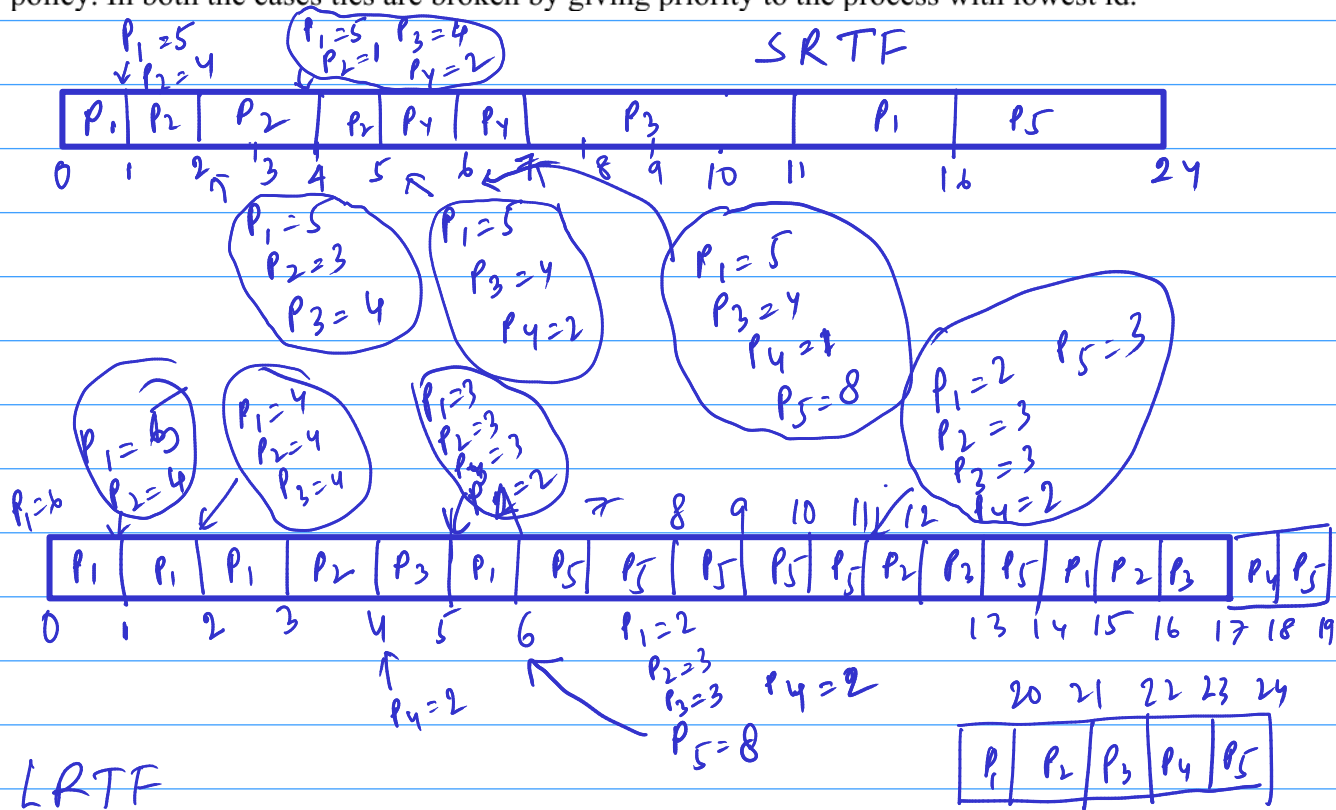 policy. In both the cases ties are broken by giving priority to the process with lowest id.
P1=5 P1=5 P3=4 SRTF
P2=4 P2=1 P4=2
P1 P2 P2 P2 P4 P4 P3 P1 P5
0 1 2 3 4 5 6 7 8 9 10 11 16 24
P1=5 P1=5 P1=5
P2=3 P3=4 P3=4
P3=4 P4=2 P4=1
P5=8
P1=2 P5=3
P2=3
P3=3
P4=2
P1=6 P1=5 P1=4 P1=3
P2=4 P2=4 P2=3
P3=4 P3=3
P4=2
7 8 9 10 11 12
P1 P1 P1 P2 P3 P1 P5 P5 P5 P5 P5 P2 P3 P5 P1 P2 P3 P4 P5
0 1 2 3 4 5 6 13 14 15 16 17 18 19
P4=2
P1=2
P2=3
P3=3 P4=2
P5=8
20 21 22 23 24
P1 P2 P3 P4 P5
LRTF